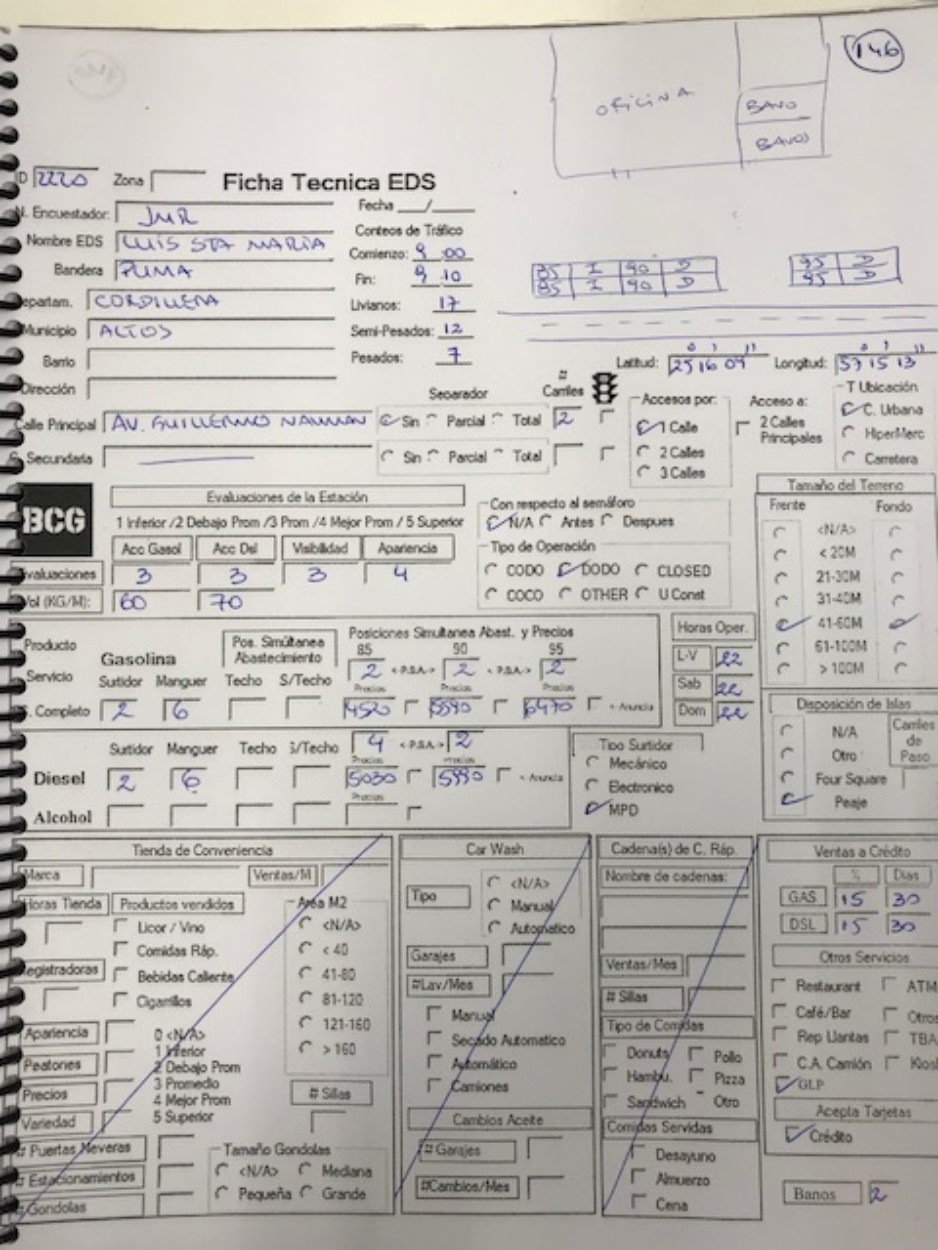 146
OFICINA
BANO
BANOS
ID 2220 Zona Ficha Tecnica EDS
N. Encuestador: JMR Fecha __/__
Nombre EDS LUIS STA MARIA Conteos de Tráfico
Bandera PUMA Comienzo: 9 00
Fin: 9 10
Departam. CORDILLERA Livianos: 17
Municipio ALTOS Semi-Pesados: 12
Barrio Pesados: 7
85 I 90 D 95 D
85 I 90 D 95 D
Latitud: 25 16 09 Longitud: 57 15 13
Dirección
Separador # Carriles
Calle Principal AV. GUILLERMO NAUMAN Sin Parcial Total 2
C. Secundaria Sin Parcial Total
Accesos por:
1 Calle
2 Calles
3 Calles
Acceso a:
2 Calles
Principales
T Ubicación
C. Urbana
HiperMerc
Carretera
BCG
Evaluaciones de la Estación
1 Inferior /2 Debajo Prom /3 Prom /4 Mejor Prom / 5 Superior
Acc Gasol Acc Dsl Visibilidad Apariencia
Evaluaciones 3 3 3 4
Vol (KG/M): 60 70
Con respecto al semáforo
N/A Antes Despues
Tipo de Operación
CODO DODO CLOSED
COCO OTHER U Const
Tamaño del Terreno
Frente Fondo
<N/A>
< 20M
21-30M
31-40M
41-60M
61-100M
> 100M
Producto Gasolina Pos. Simúltanea Abastecimiento Posiciones Simultanea Abast. y Precios
85 90 95
Servicio Surtidor Manguer Techo S/Techo 2 < P.S.A.> 2 < P.S.A.> 2
Precios Precios Precios
S. Completo 2 6 4520 5590 6470 < Anuncia
Horas Oper.
L-V 22
Sab 22
Dom 22
Surtidor Manguer Techo S/Techo 4 < P.S.A.> 2
Precios Precios
Diesel 2 6 5030 5990 < Anuncia
Precios
Alcohol
Tipo Surtidor
Mecánico
Electronico
MPD
Disposición de Islas
N/A
Otro
Four Square
Peaje
Carriles
de
Paso
Tienda de Conveniencia
Marca Ventas/M
Horas Tienda Productos vendidos
Licor / Vino
Comidas Ráp.
Registradoras Bebidas Caliente
Cigarrillos
Area M2
<N/A>
< 40
41-80
81-120
121-160
> 160
# Sillas
Apariencia
Peatones
Precios
Variedad
0 <N/A>
1 Inferior
2 Debajo Prom
3 Promedio
4 Mejor Prom
5 Superior
# Puertas Neveras
# Estacionamientos
# Gondolas
Tamaño Gondolas
<N/A> Mediana
Pequeña Grande
Car Wash
Tipo
<N/A>
Manual
Automatico
Garajes
#Lav/Mes
Manual
Secado Automatico
Automático
Camiones
Cambios Aceite
# Garajes
#Cambios/Mes
Cadena(s) de C. Ráp.
Nombre de cadenas:
Ventas/Mes
# Sillas
Tipo de Comidas
Donuts Pollo
Hambu. Pizza
Sandwich Otro
Comidas Servidas
Desayuno
Almuerzo
Cena
Ventas a Crédito
% Dias
GAS 15 30
DSL 15 30
Otros Servicios
Restaurant ATM
Café/Bar Otros
Rep Llantas TBA
C.A. Camión Kios
GLP
Acepta Tarjetas
Crédito
Banos 2